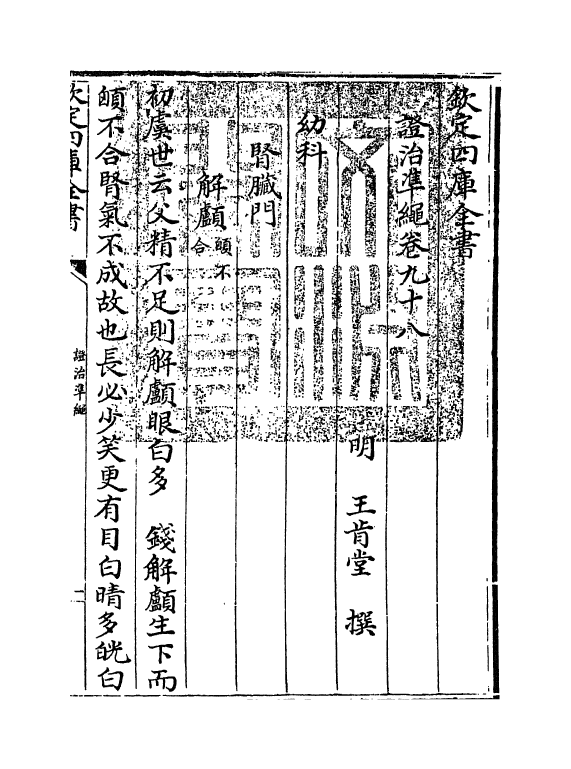 欽定四庫全書
證治準繩卷九十八
明 王肯堂 撰
幼科
腎臟門
解顱 顖不合
初虞世云父精不足則解顱眼白多 錢解顱生下而
䪿不合腎氣不成故也長必少笑更有目白晴多㿠白
欽定四庫全書
證治準繩